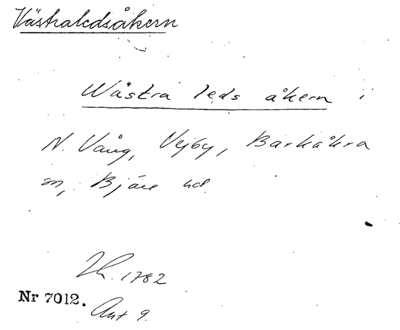 Västraledsåkern
Wästra leds åkern i
N. Vång, Vejby, Barkåkra
sn, Bjäre hd.
Lh. 1782
Nr 7012.
Akt 9.